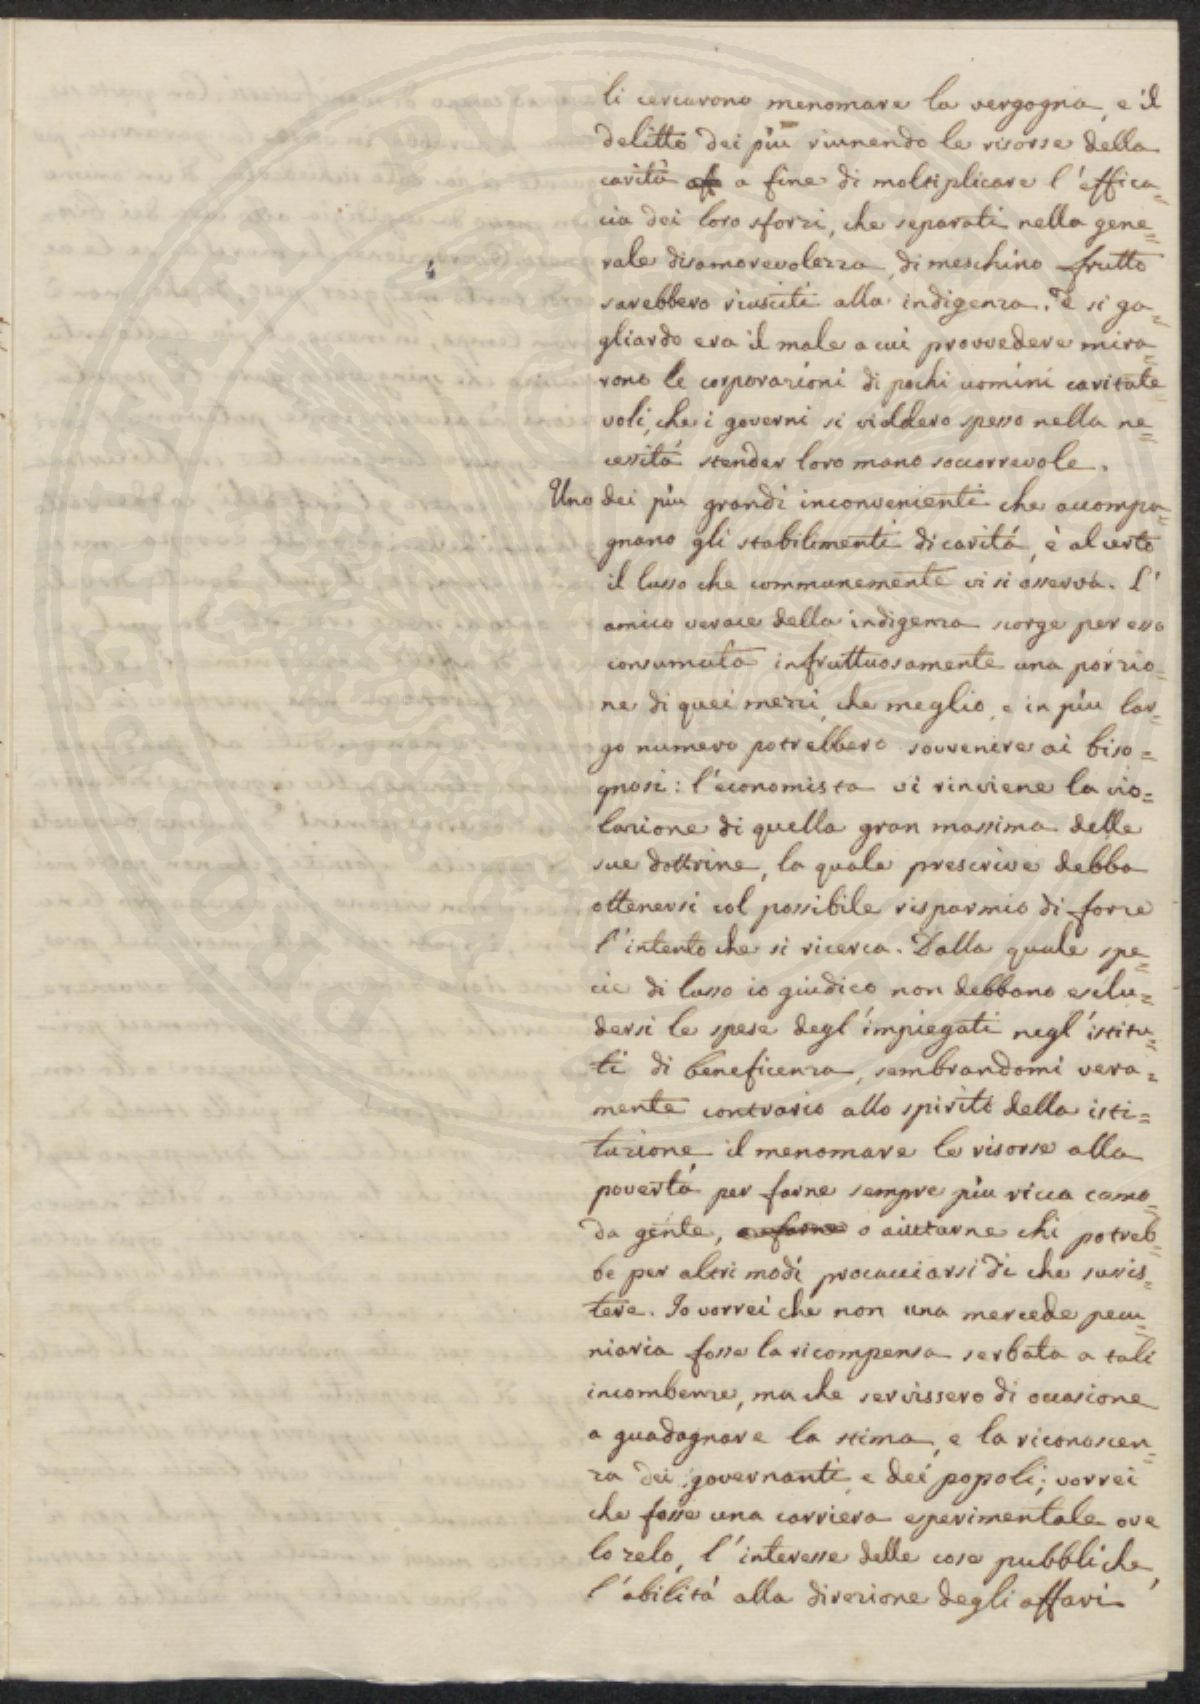 li cercarono menomare la vergogna, e il
delitto dei più riunendo le risorse della
carità a fine di moltiplicare l'effica=
cia dei loro sforzi, che separati nella gene=
rale disamorevolezza, di meschino frutto
sarebbero riusciti alla indigenza. E si ga=
gliardo era il male a cui provvedere mira=
rono le corporazioni di pochi uomini caritate=
voli, che i governi si viddero spesso nella ne=
cessità stender loro mano soccorrevole.
Uno dei più grandi inconvenienti che accompa=
gnano gli stabilimenti di carità, è al certo
il lusso che communemente vi si osserva. L'
amico verace della indigenza scorge per esso
consumata infruttuosamente una porzio=
ne di quei mezzi, che meglio, e in più lar=
go numero potrebbero sovvenire ai biso=
gnosi: l'economista vi rinviene la vio=
lazione di quella gran massima delle
sue dottrine, la quale prescrive debba
ottenersi col possibile risparmio di forze
l'intento che si ricerca. Dalla quale spe=
cie di lusso io giudico non debbano esclu=
dersi le spese degl'impiegati negl'istitu=
ti di beneficenza, sembrandomi vera=
mente contrario allo spirito della isti=
tuzione il menomare le risorse alla
povertà per farne sempre più ricca como=
da gente, o aiutarne chi potreb=
be per altri modi procacciarsi di che sussis=
tere. Io vorrei che non una mercede pecu=
niaria fosse la ricompensa serbata a tali
incombenze, ma che servissero di occasione
a guadagnare la stima, e la riconoscen=
za dei governanti e dei popoli; vorrei
che fosse una carriera esperimentale ove
lo zelo, l'interesse delle cose pubbliche,
l'abilità alla direzione degli affari